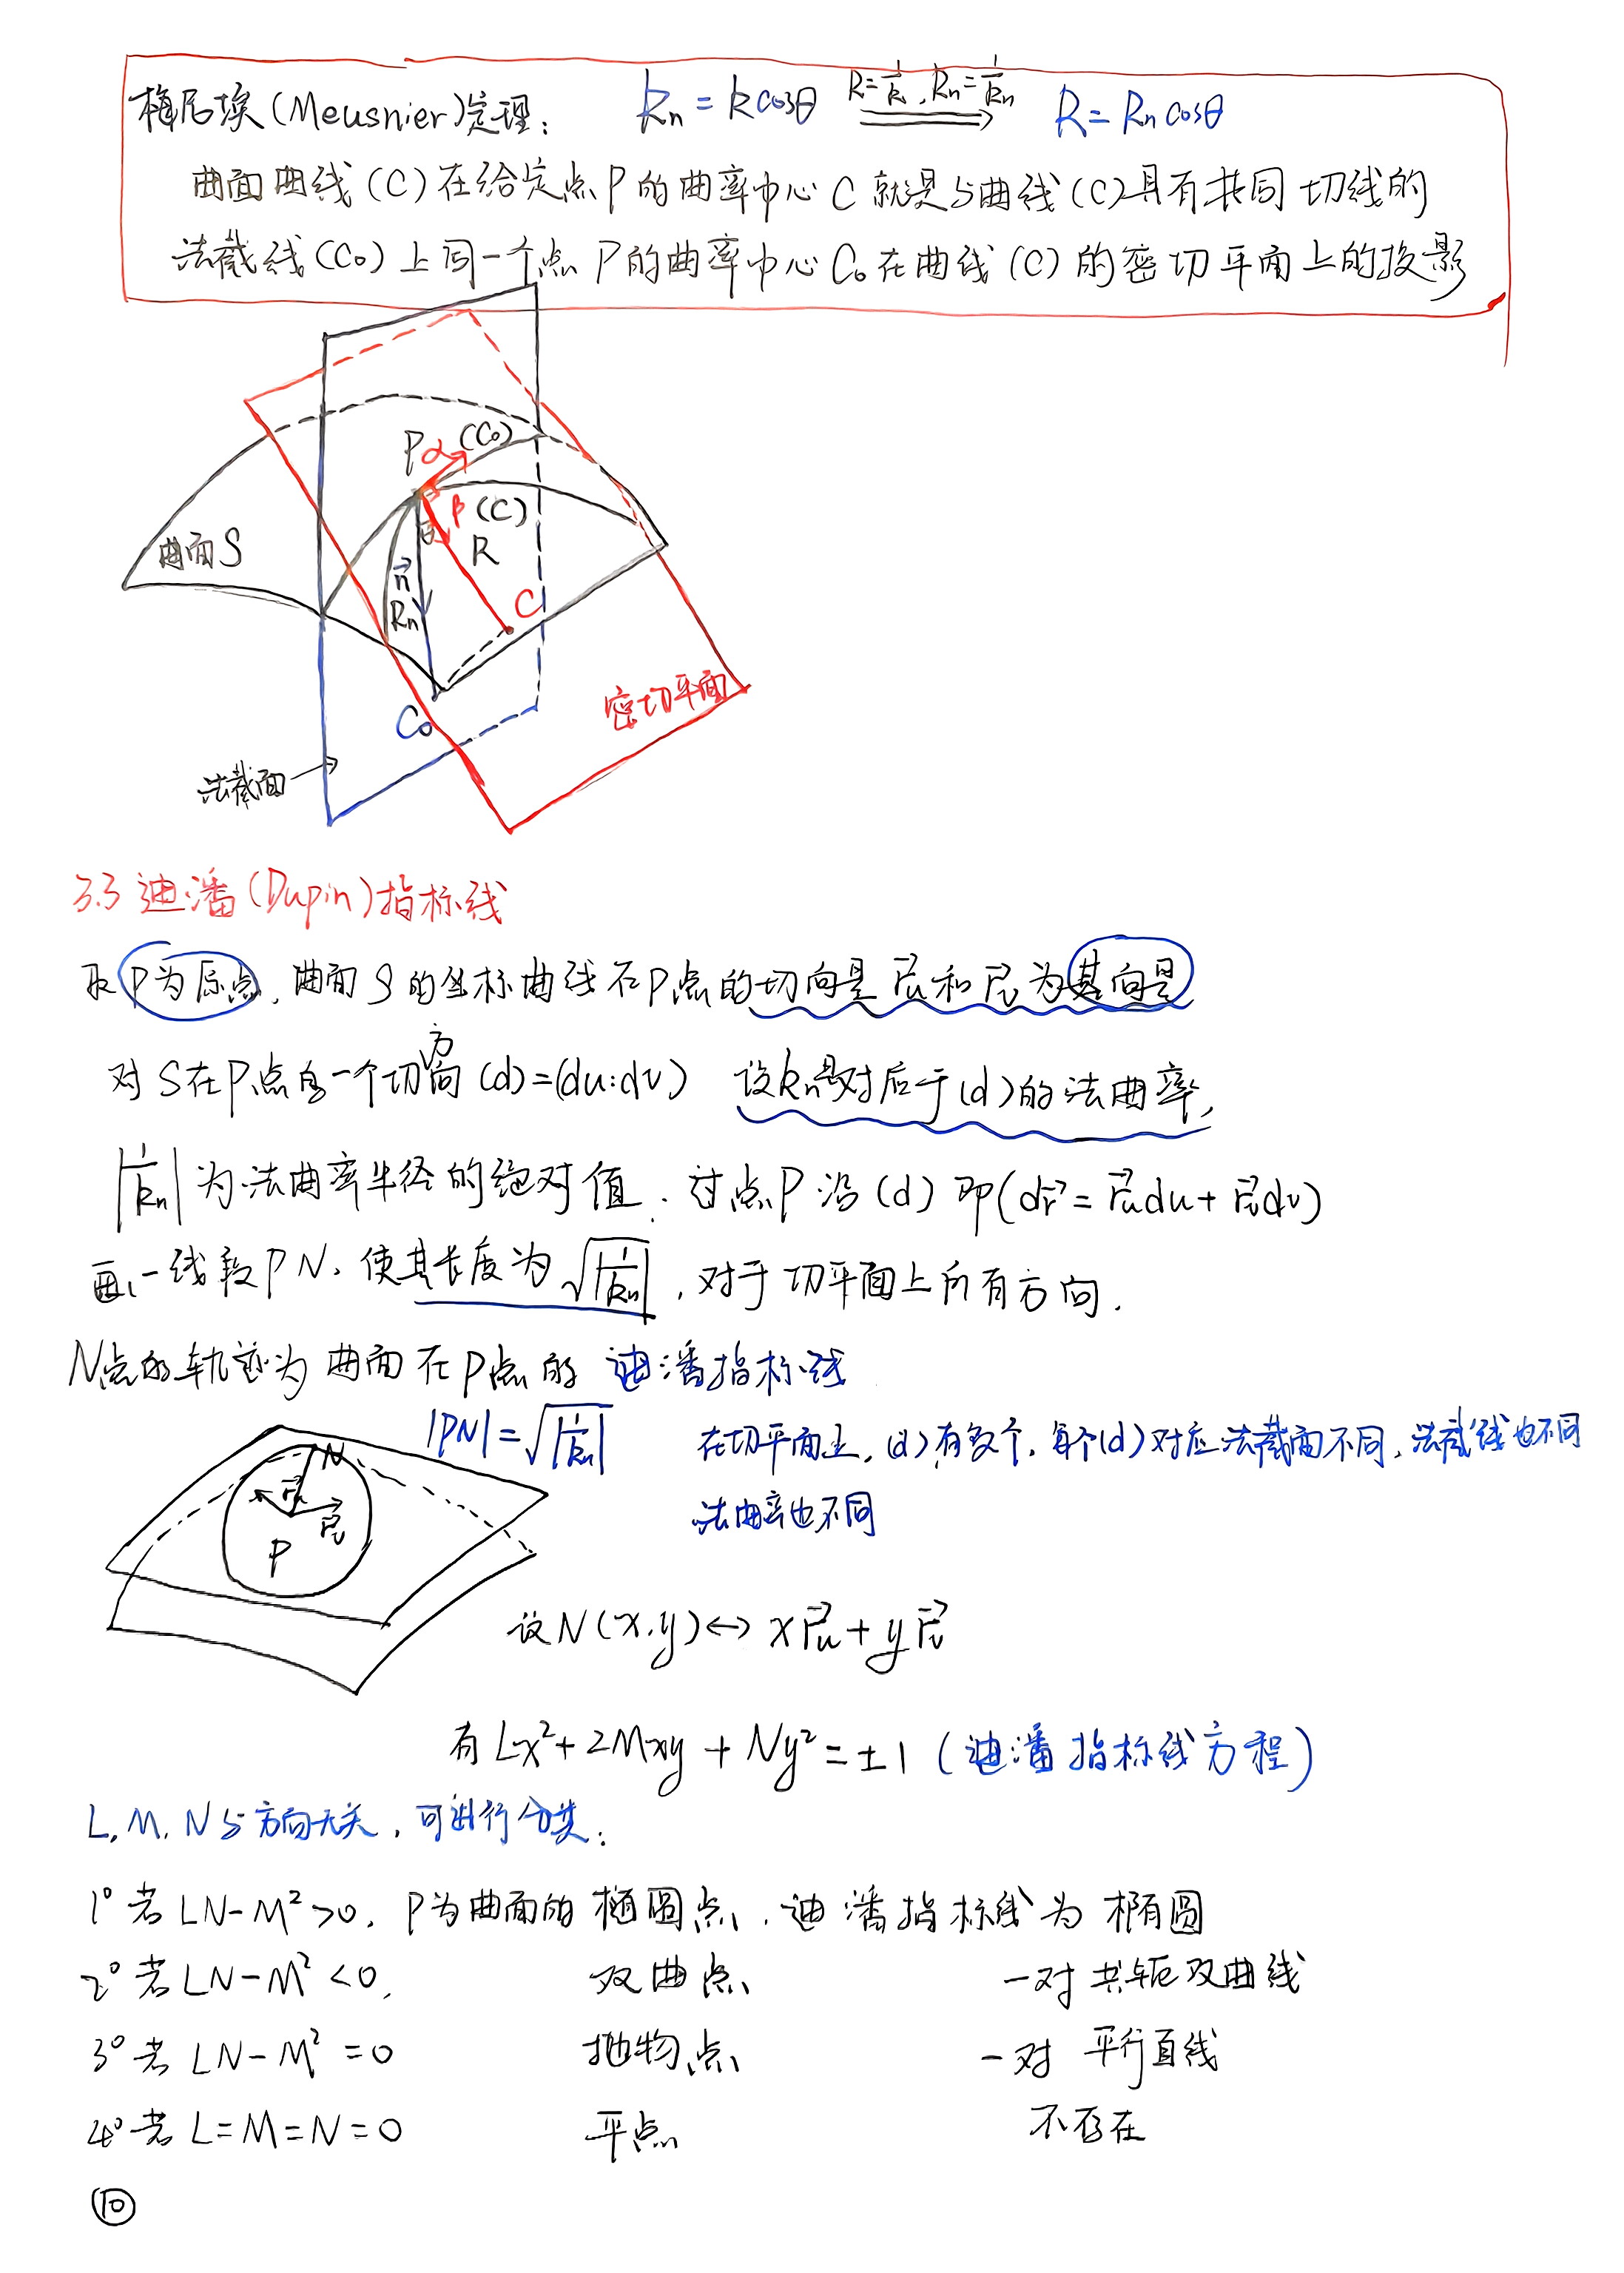 梅尼埃(Meusnier)定理: kn = k cosθ R=1/k, Rn=1/kn ⟹ R = Rn cosθ
曲面曲线(C)在给定点P的曲率中心C就是与曲线(C)具有共同切线的
法截线(C₀)上同一个点P的曲率中心C₀在曲线(C)的密切平面上的投影
P α (C₀)
β (C)
曲面S
R
n⃗
Rn
C
C₀
密切平面
法截面
3.3 迪潘(Dupin)指标线
取P为原点,曲面S的坐标曲线在P点的切向量 r⃗u和r⃗v为基向量
对S在P点的一个切方向(d)=(du:dv) 设kn是对应于(d)的法曲率,
|1/kn|为法曲率半径的绝对值.过点P沿(d)即(dr⃗=r⃗udu+r⃗vdv)
画一线段PN,使其长度为√|1/kn|,对于切平面上所有方向.
N点的轨迹为曲面在P点的迪潘指标线
|PN|=√|1/kn| 在切平面上,(d)有多个,每个(d)对应法截面不同,法截线也不同
法曲率也不同
N
r⃗u
r⃗v
P
设N(x,y)↔xr⃗u+yr⃗v
有Lx²+2Mxy+Ny²=±1(迪潘指标线方程)
L,M,N与方向无关,可进行分类:
1°若LN-M²>0,P为曲面的椭圆点,迪潘指标线为椭圆
2°若LN-M²<0, 双曲点 一对共轭双曲线
3°若LN-M²=0 抛物点 一对平行直线
4°若L=M=N=0 平点 不存在
⑩